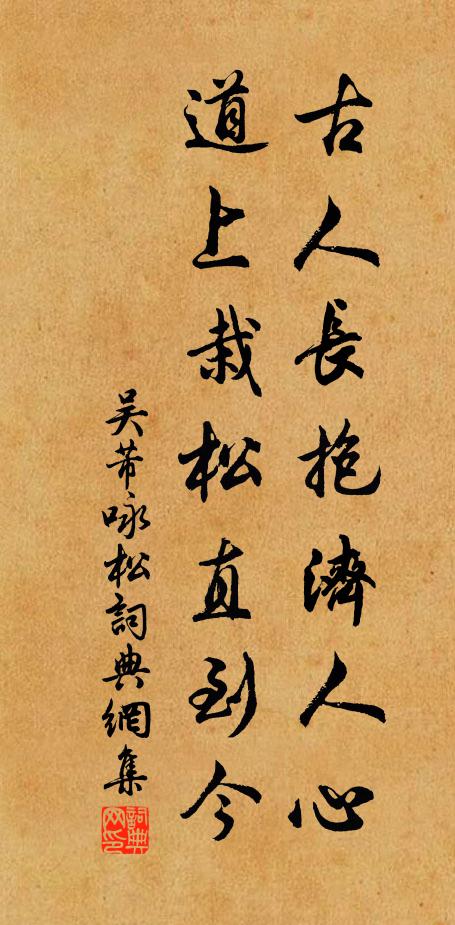 古人長抱濟人心
道上栽松直到今
吴芾咏松詞典網集
詞典网印